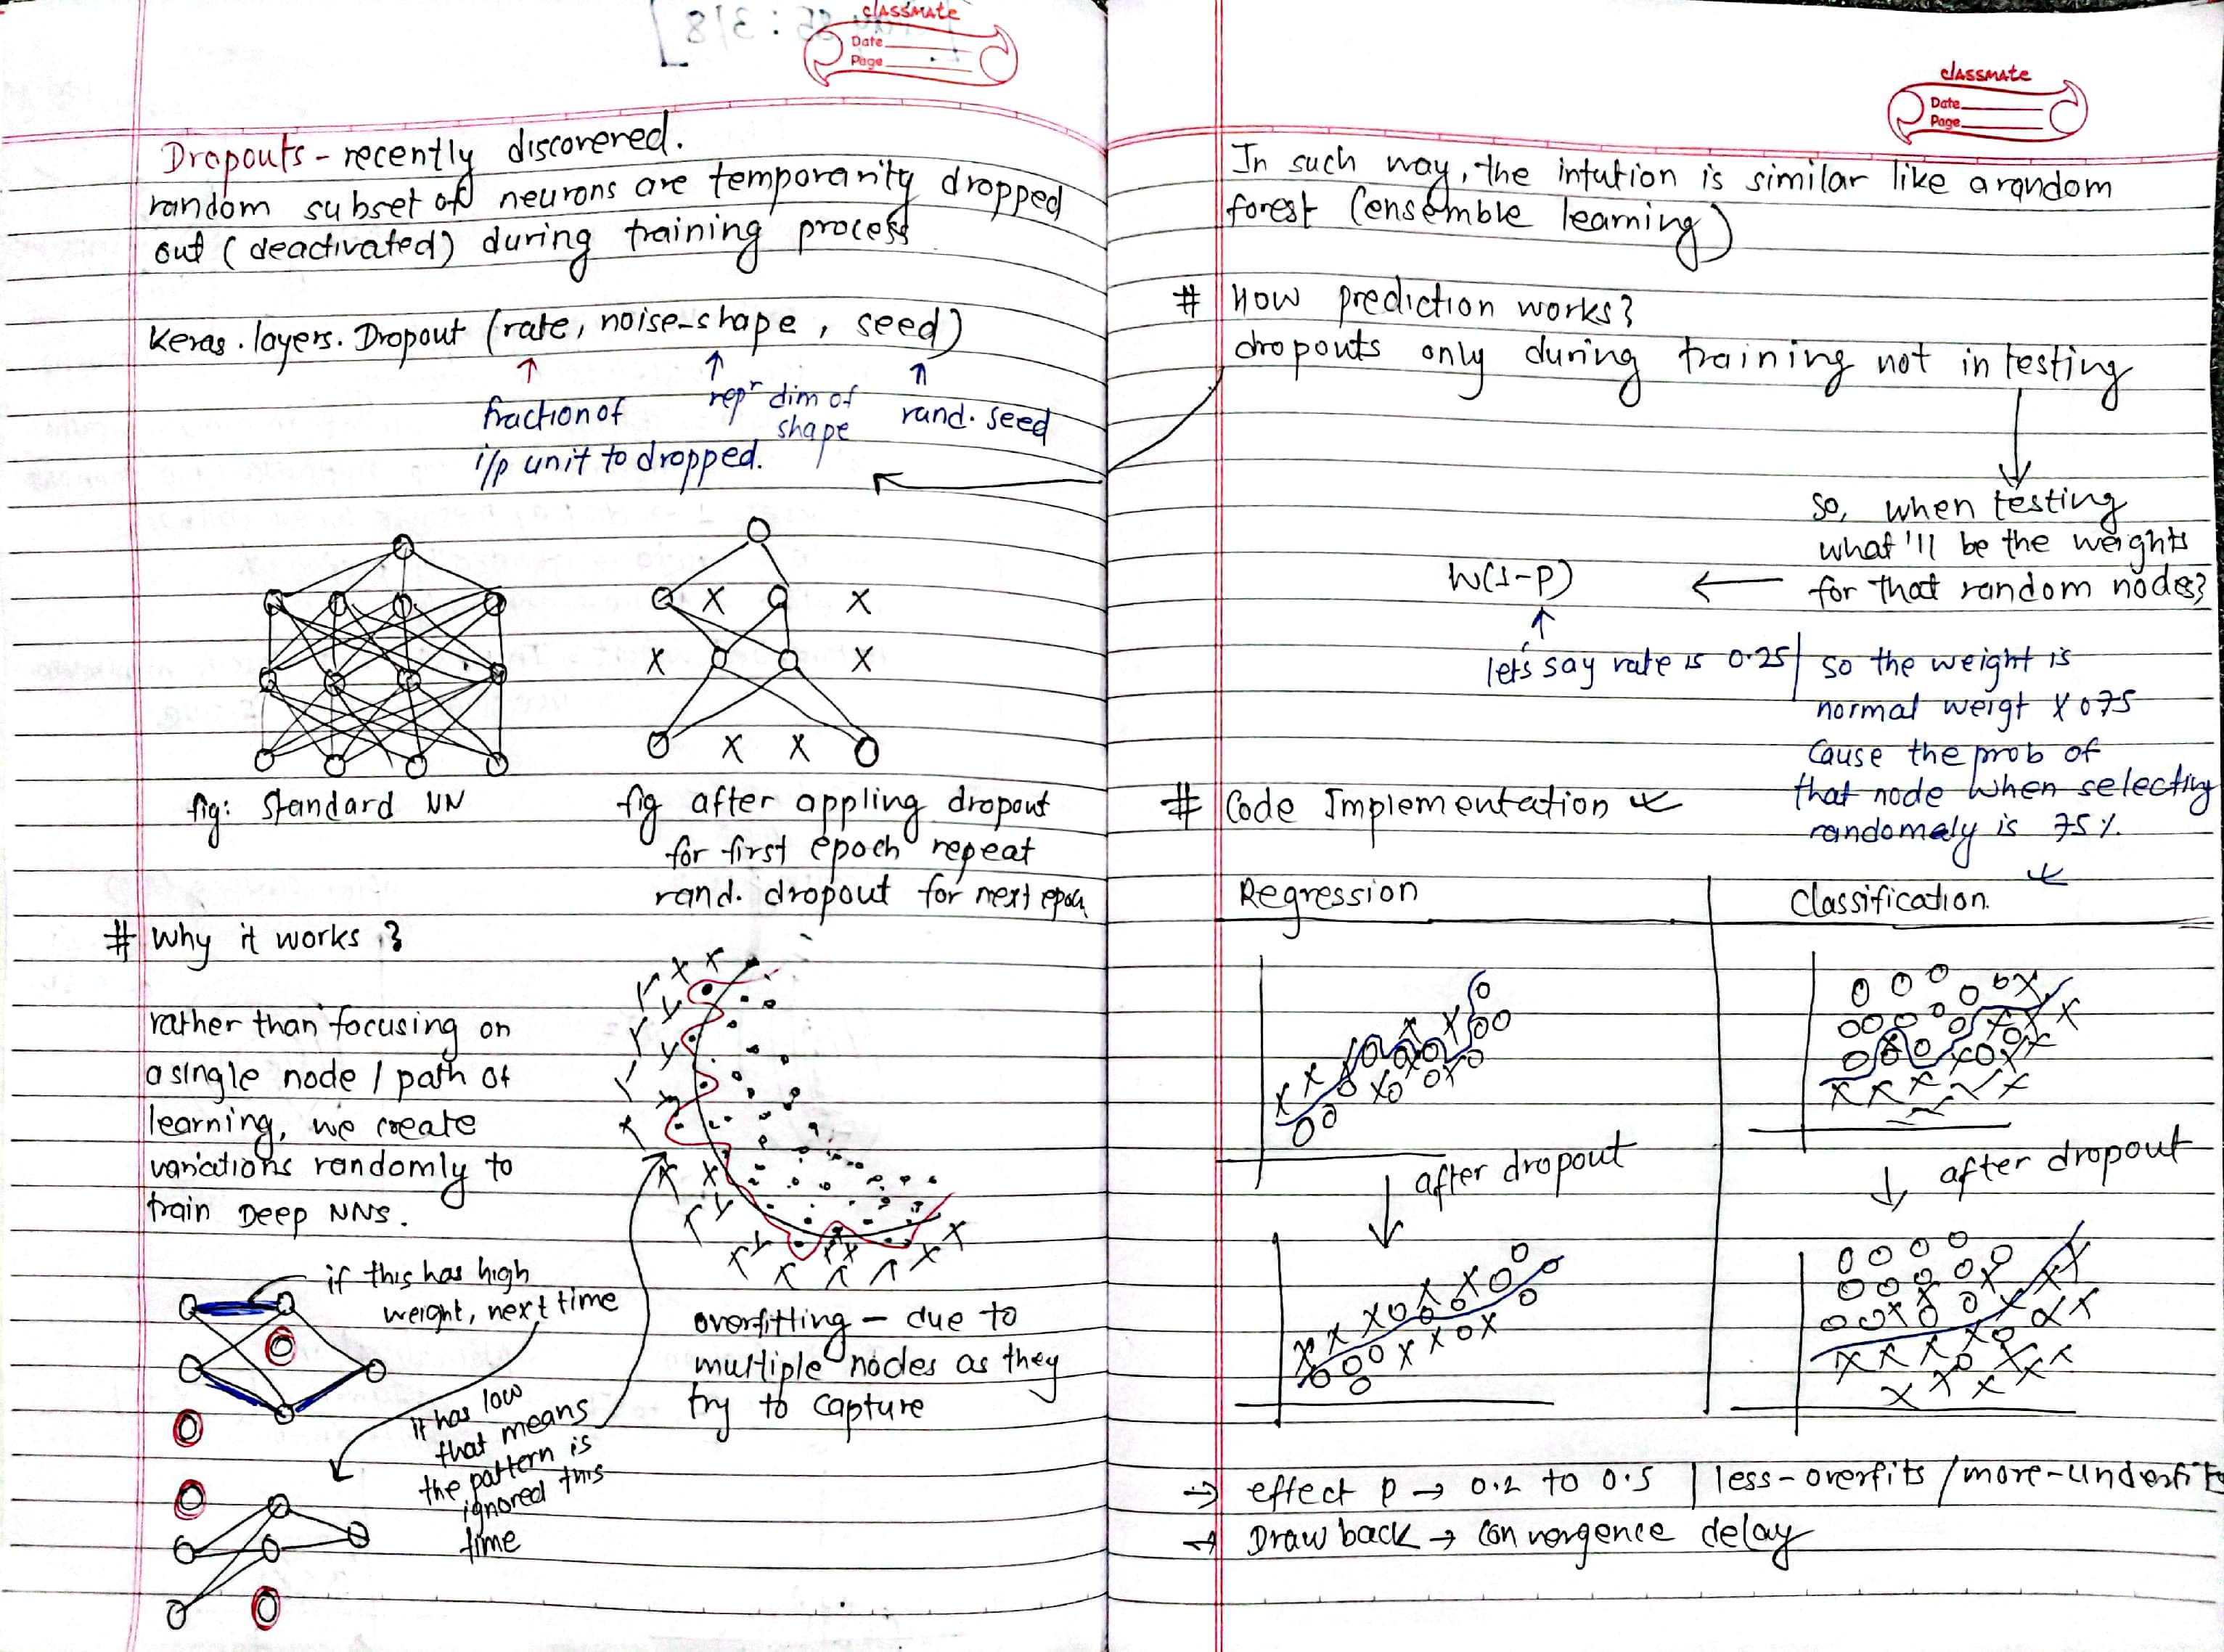 classmate
Date
Page
Dropouts - recently discovered.
random subset of neurons are temporarity dropped
out (deactivated) during training process
Keras.layers.Dropout (rate, noise-shape, seed)
↑ ↑ ↑
fraction of
i/p unit to dropped.
repr dim of
shape
rand. seed
X X
X X
X X
fig: Standard NN
fig after appling dropout
for first epoch repeat
rand. dropout for next epoch
# Why it works?
rather than focusing on
a single node / path of
learning, we create
variations randomly to
train Deep NNs.
if this has high
weight, next time
it has low
that means
the pattern is
ignored this
time
overfitting - due to
multiple nodes as they
try to capture
classmate
Date
Page
In such way, the intution is similar like a random
forest (ensemble learning)
# How prediction works?
dropouts only during training not in testing
so, when testing
what'll be the weights
for that random nodes?
←
W(1-P)
↑
let's say rate is 0.25 | so the weight is
normal weigt X 075
Cause the prob of
that node when selecting
randomaly is 75%.
# Code Implementation
Regression
Classification.
after dropout
after dropout
→ effect P → 0.2 to 0.5 | less-overfits / more-underfits
→ Drawback → Convergence delay